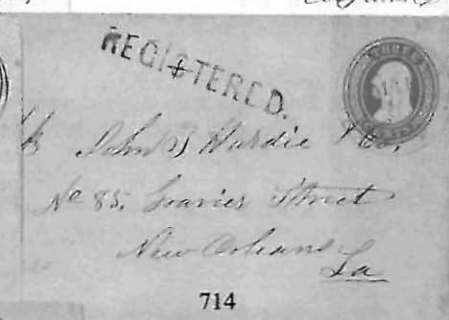 REGISTERED.
THREE
John B Hardie & Co,
No 85, Gravier Street
New Orleans
La
714